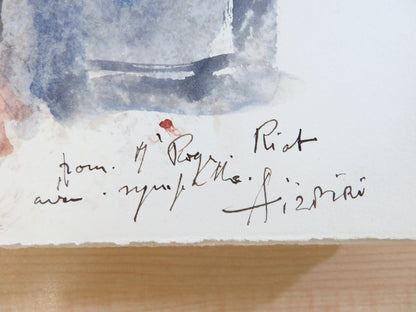 pour. Mr Roger. Riot
avec. sympathie. Aïzpiri